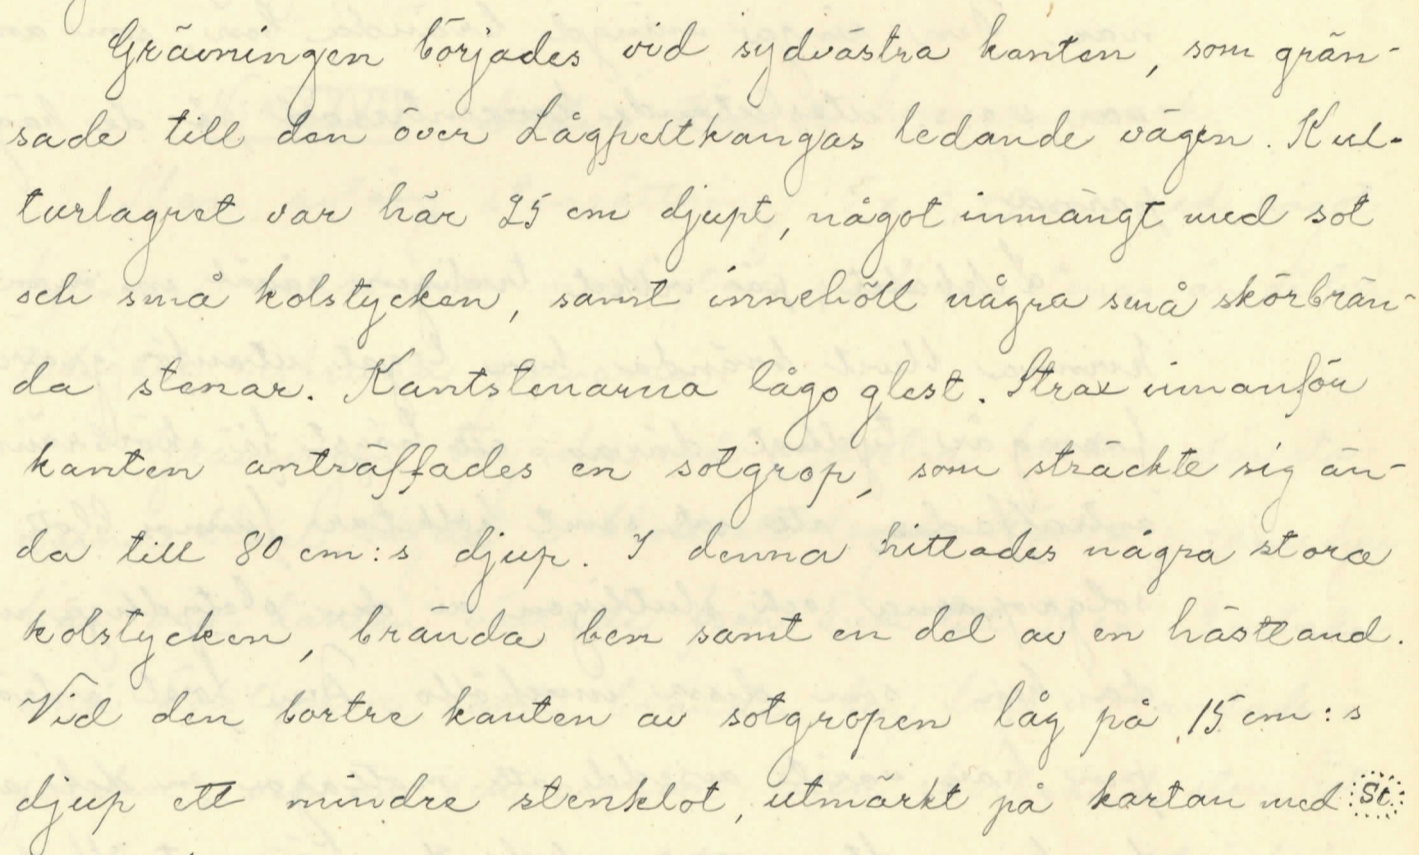 Grävningen börjades vid sydvästra kanten, som grän-
sade till den över Lågpeltkangas ledande vägen. Kul-
turlagret var här 25 cm djupt, något inmängt med sot
och små kolstycken, samt innehöll några små skörbrän-
da stenar. Kantstenarna lågo glest. Strax innanför
kanten anträffades en sotgrop, som sträckte sig än-
da till 80 cm:s djup. I denna hittades några stora
kolstycken, brända ben samt en del av en hästtand.
Vid den bortre kanten av sotgropen låg på 15 cm:s
djup ett mindre stenklot, utmärkt på kartan med St.